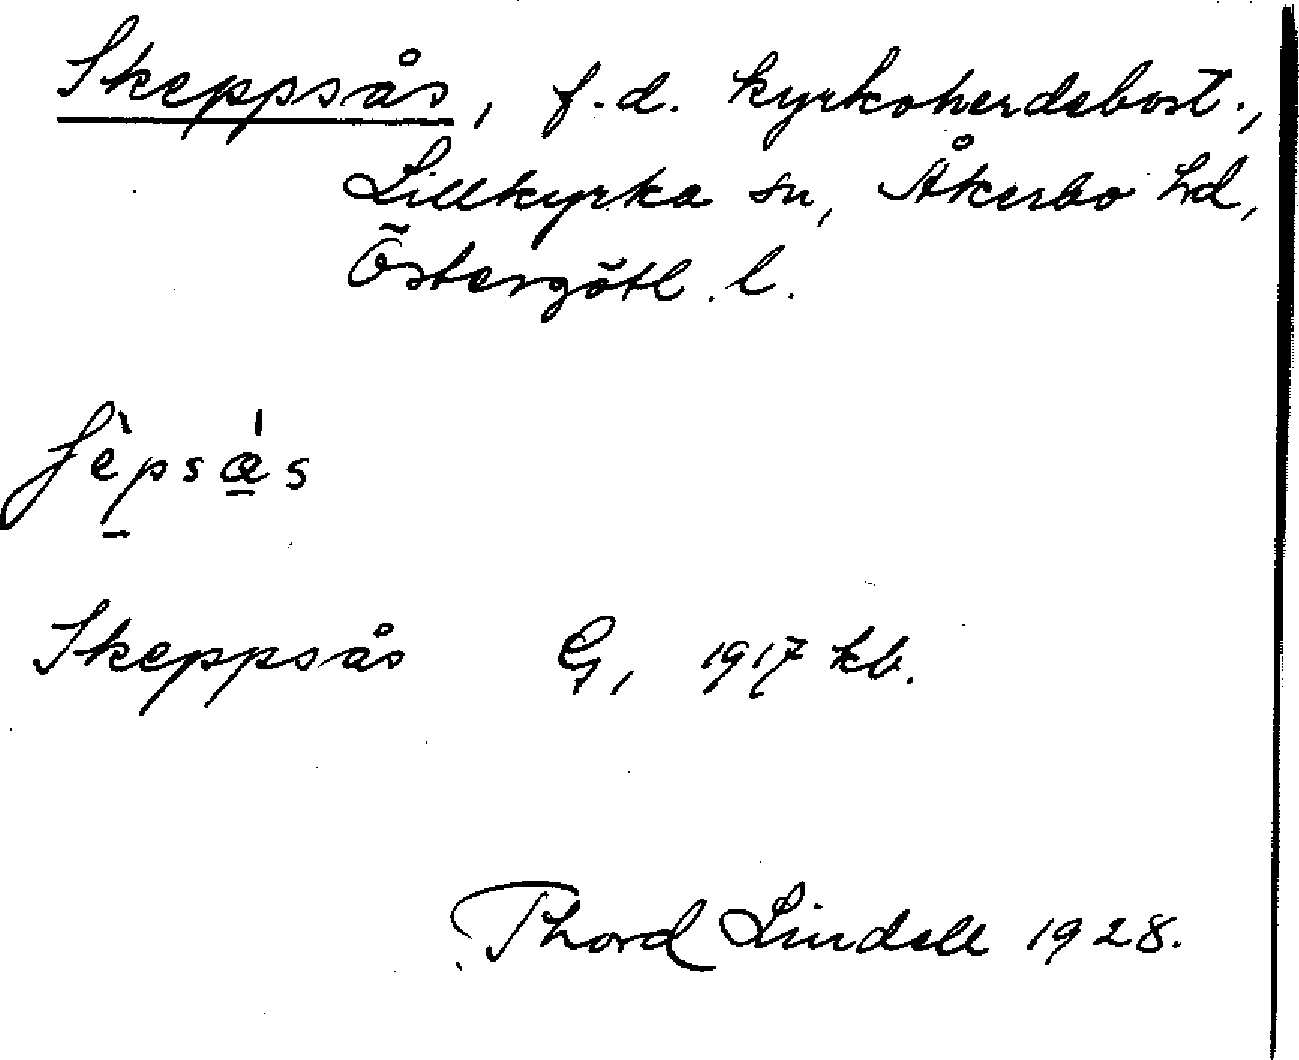 Skeppsås, f.d. kyrkoherdebost.,
Lillkyrka sn, Åkerbo hd,
Östergötl. l.
ʃèpså̀s
Skeppsås G, 1917 kb.
Thord Lindell 1928.